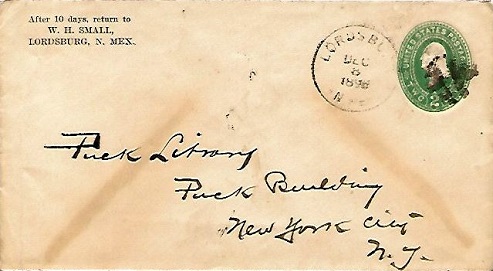 After 10 days, return to
W. H. SMALL,
LORDSBURG, N. MEX.
LORDSBU
DEC
8
N M
UNITED STATES POSTAGE
TWO 2
Puck Library
Puck Building
New York City
N.Y.